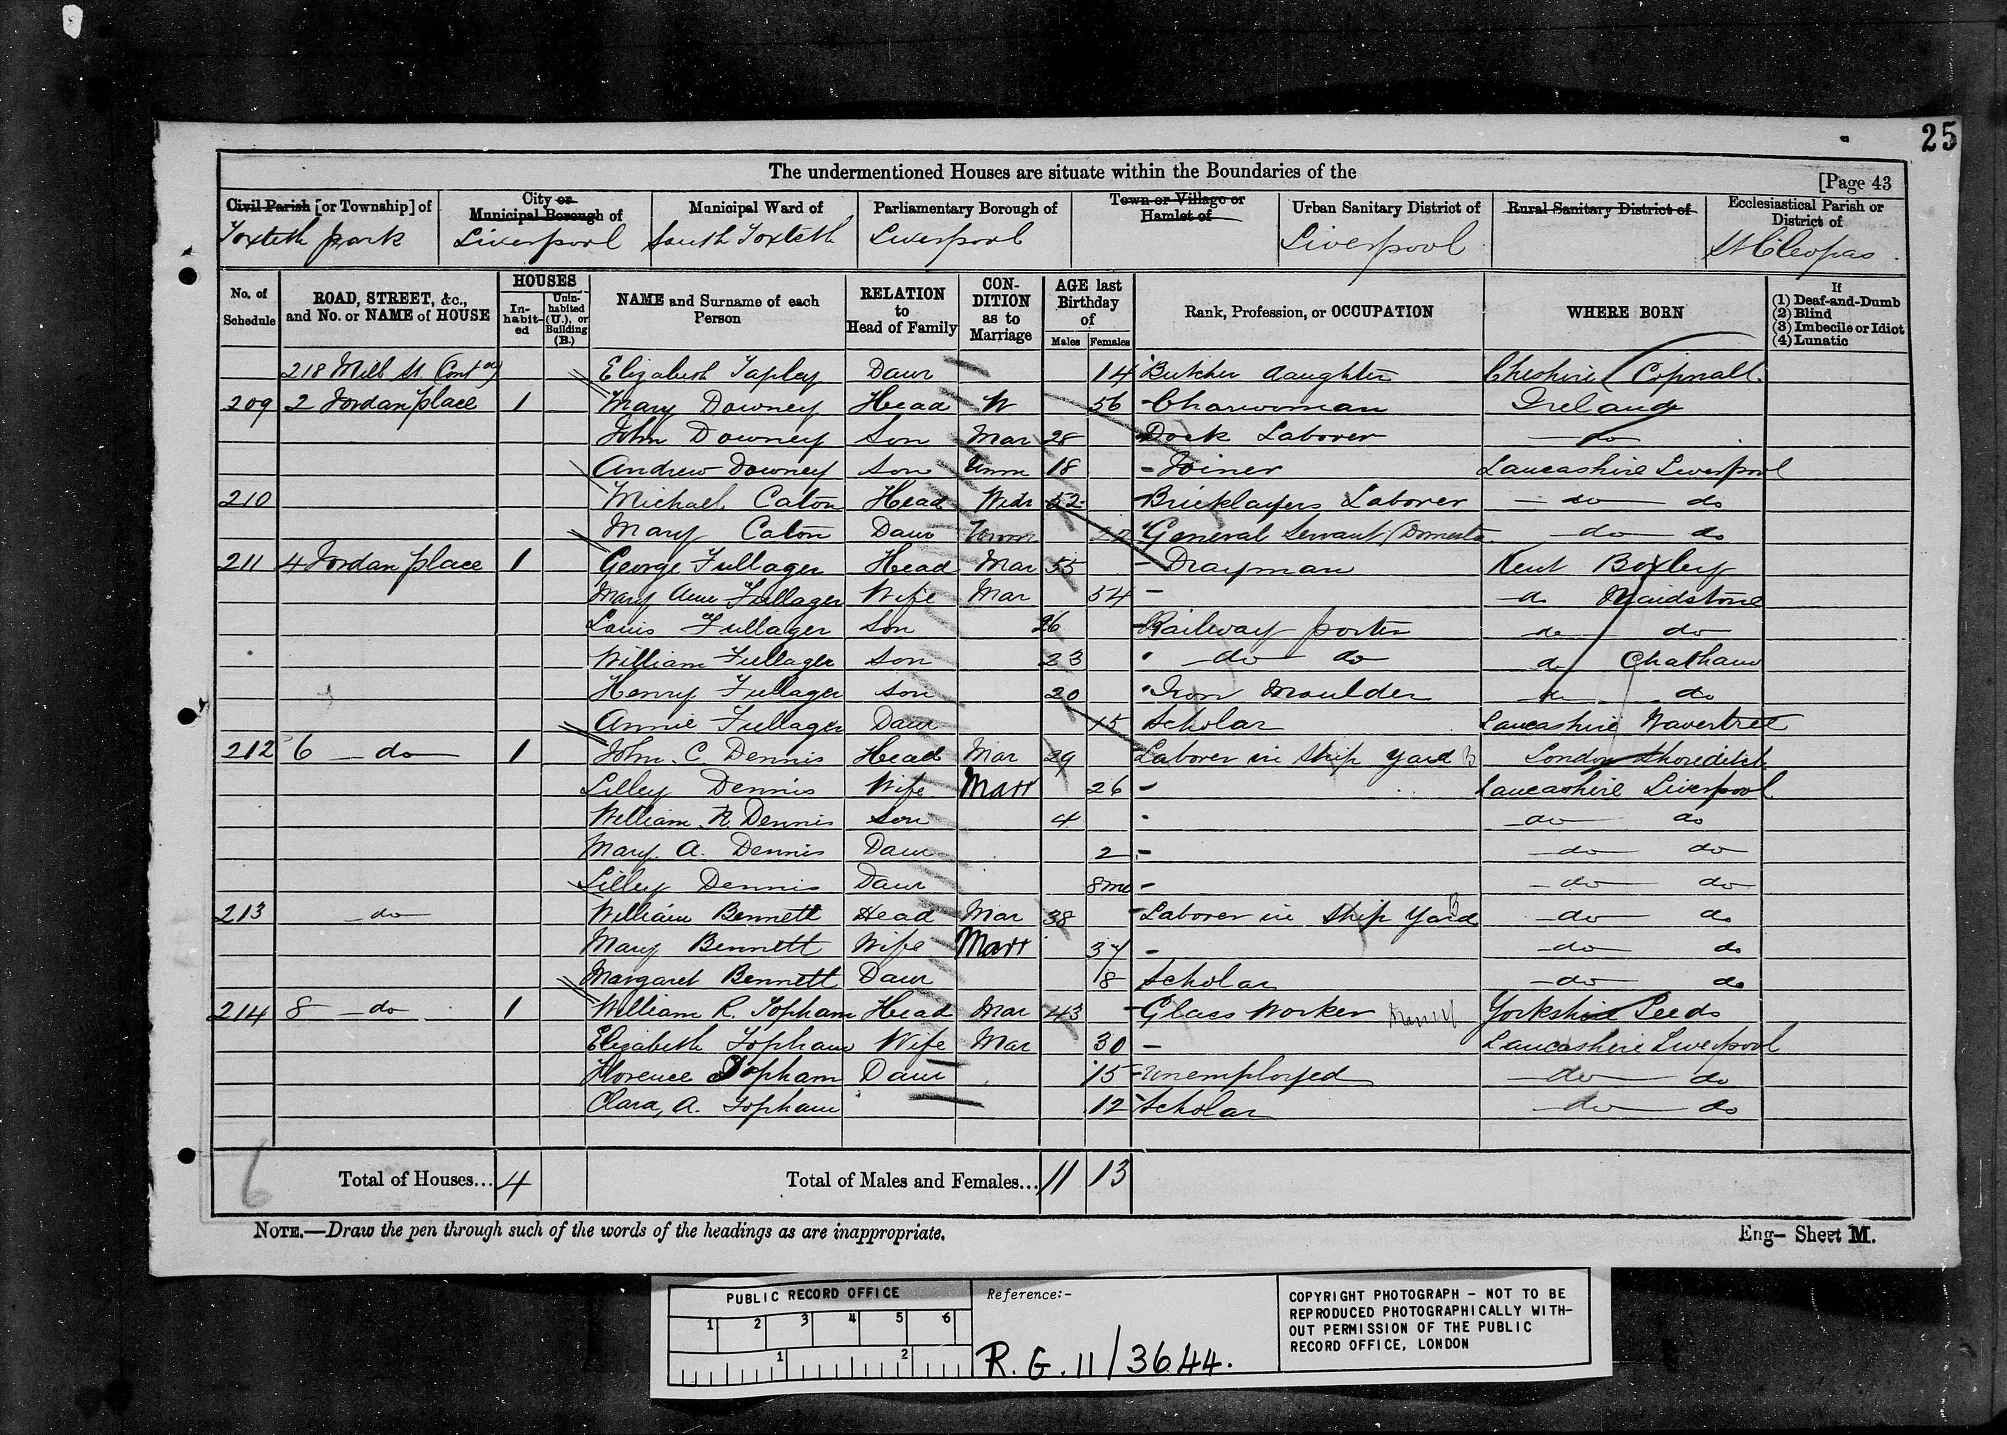 25
The undermentioned Houses are situate within the Boundaries of the
[Page 43
Civil Parish [or Township] of
Toxteth park
City or Municipal Borough of
Liverpool
Municipal Ward of
South Toxteth
Parliamentary Borough of
Liverpool
Town or Village or Hamlet of
Urban Sanitary District of
Liverpool
Rural Sanitary District of
Ecclesiastical Parish or District of
St Cleopas
No. of Schedule
ROAD, STREET, &c., and No. or NAME of HOUSE
HOUSES
In-habit-ed
Unin-habited (U.), or Building (B.)
NAME and Surname of each Person
RELATION to Head of Family
CON-DITION as to Marriage
AGE last Birthday of
Males Females
Rank, Profession, or OCCUPATION
WHERE BORN
If (1) Deaf-and-Dumb (2) Blind (3) Imbecile or Idiot (4) Lunatic
218 Mill St (Contd) Elizabeth Tapley Daur 14 Butcher daughter Cheshire
209 2 Jordan place 1 Mary Downey Head W 56 Charwoman Ireland
John Downey Son Mar 28 Dock Laborer do
Andrew Downey Son Unm 18 Joiner Lancashire Liverpool
210 Michael Caton Head Widr 52 Bricklayers Laborer do do
Mary Caton Daur Unm 22 General Servant (Domestic do do
211 4 Jordan place 1 George Fullager Head Mar 55 Drayman Kent Boxley
Mary Ann Fullager Wife Mar 54 - do Maidstone
Louis Fullager Son 26 Railway porter do do
William Fullager Son 23 do do do Chatham
Henry Fullager Son 20 Iron Moulder do do
Annie Fullager Daur 15 Scholar Lancashire Wavertree
212 6 do 1 John. C. Dennis Head Mar 29 Laborer in Ship Yard London Shoreditch
Lilley Dennis Wife Marr 26 - Lancashire Liverpool
William R Dennis Son 4 do do
Mary. A. Dennis Daur 2 - do do
Lilley Dennis Daur 8mo - do do
213 do William Bennett Head Mar 38 Laborer in Ship Yard do do
Mary Bennett Wife Marr 37 - do do
Margaret Bennett Daur 8 Scholar do do
214 8 do 1 William R. Topham Head Mar 43 Glass Worker Yorkshire Leeds
Elizabeth Topham Wife Mar 30 - Lancashire Liverpool
Florence Topham Daur 15 Unemployed do do
Clara, A. Topham 12 Scholar do do
6
Total of Houses... 4
Total of Males and Females... 11 13
NOTE.—Draw the pen through such of the words of the headings as are inappropriate.
Eng— Sheet M.
PUBLIC RECORD OFFICE
1 2 3 4 5 6
1 2
Reference:-
R.G. 11/3644.
COPYRIGHT PHOTOGRAPH - NOT TO BE
REPRODUCED PHOTOGRAPHICALLY WITH-
OUT PERMISSION OF THE PUBLIC
RECORD OFFICE, LONDON